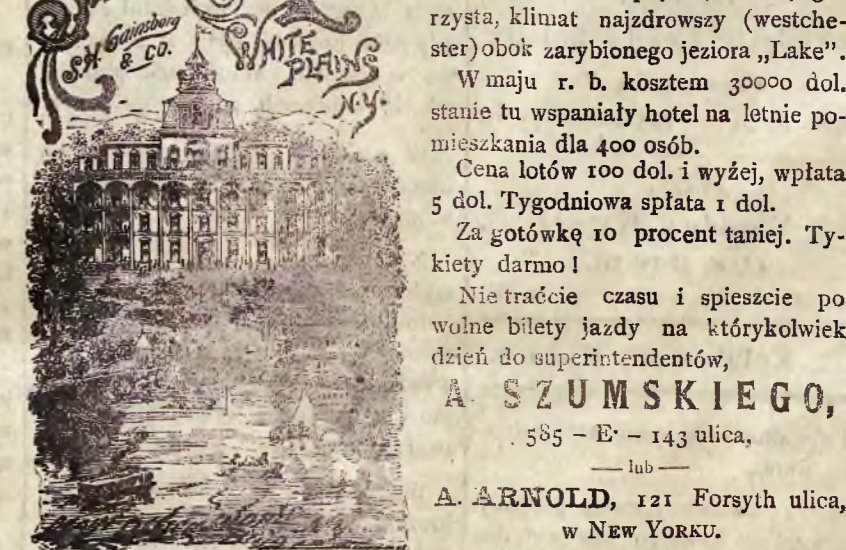 S. H. Gainsborg
& CO.
WHITE
PLAINS
N.Y.
rzysta, klimat najzdrowszy (westche-
ster) obok zarybionego jeziora „Lake”.
W maju r. b. kosztem 30000 dol.
stanie tu wspaniały hotel na letnie po-
mieszkania dla 400 osób.
Cena lotów 100 dol. i wyżej, wpłata
5 dol. Tygodniowa spłata 1 dol.
Za gotówkę 10 procent taniej. Ty-
kiety darmo!
Nie traćcie czasu i spieszcie po
wolne bilety jazdy na którykolwiek
dzień do superintendentów,
A. SZUMSKIEGO,
585 – E· – 143 ulica,
— lub —
A. ARNOLD, 121 Forsyth ulica,
w NEW YORKU.